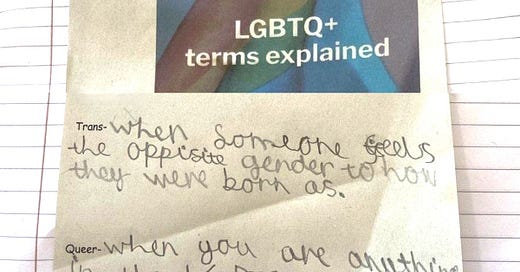 LGBTQ+
terms explained
Trans- when someone feels
the oppisite gender to how
they were born as.
Queer- when you are anything